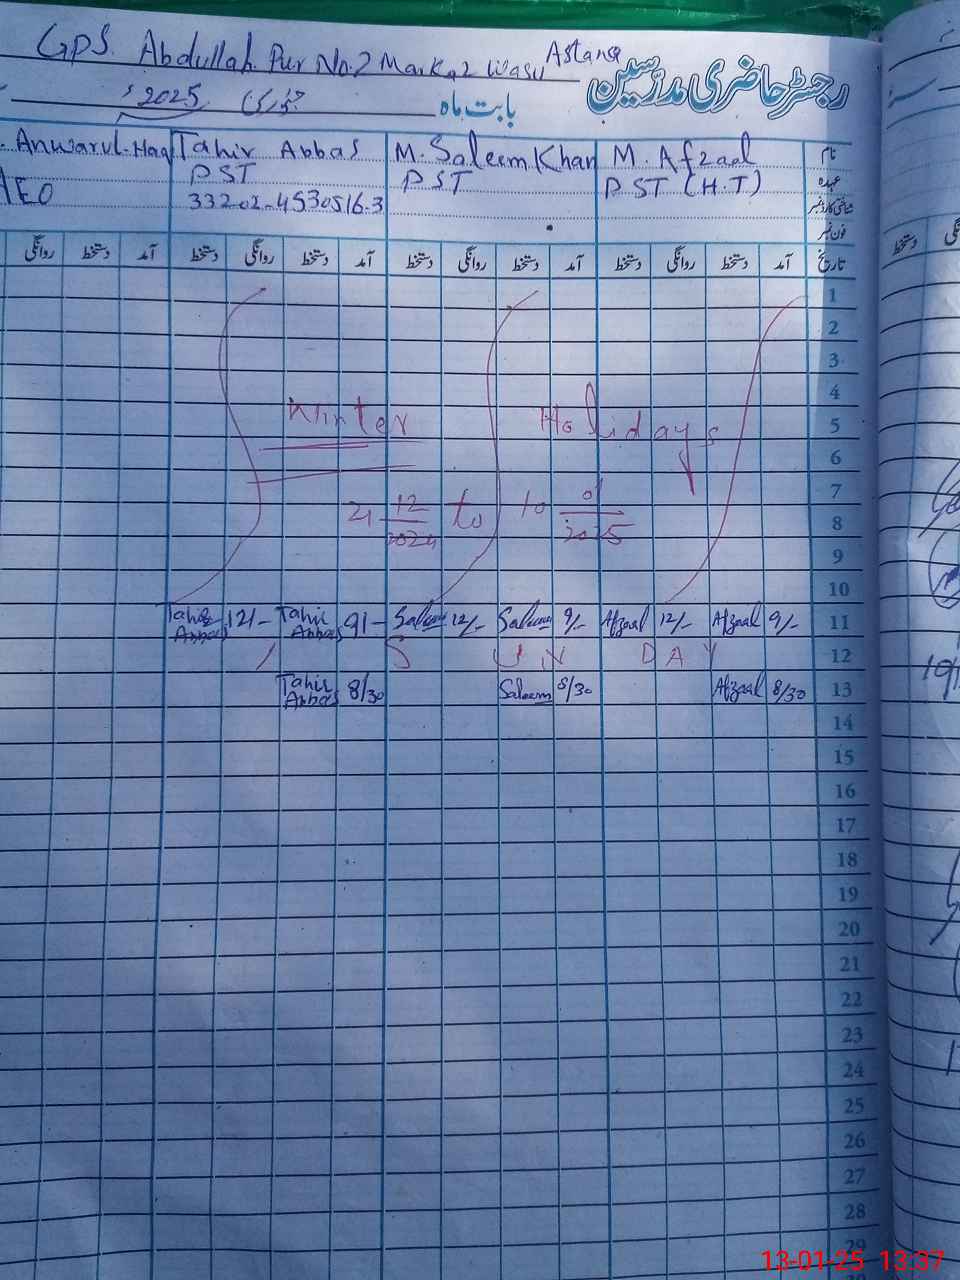 GPS. Abdullah Pur No.2 Markaz Wasu Astana
رجسٹر حاضری مدرسین
بابت ماہ جنوری 2025ء
نام M. Afzaal M. Saleem Khan Tahir Abbas Anwarul-Haq
عہدہ PST (H.T) PST PST AEO
شناختی کارڈ نمبر 33202-4530516-3
فون نمبر
تاریخ آمد دستخط روانگی دستخط آمد دستخط روانگی دستخط آمد دستخط روانگی دستخط آمد دستخط روانگی
1
2
3
4
Winter Holidays
5
6
7
21 12/2024 to 10 01/2025
8
9
10
Tahir Abbas 12/- Tahir Abbas 9/- Saleem 12/- Saleem 9/- Afzaal 12/- Afzaal 9/- 11
S U N D A Y 12
Tahir Abbas 8/30 Saleem 8/30 Afzaal 8/30 13
14
15
16
17
18
19
20
21
22
23
24
25
26
27
28
29
13-01-25 13:37